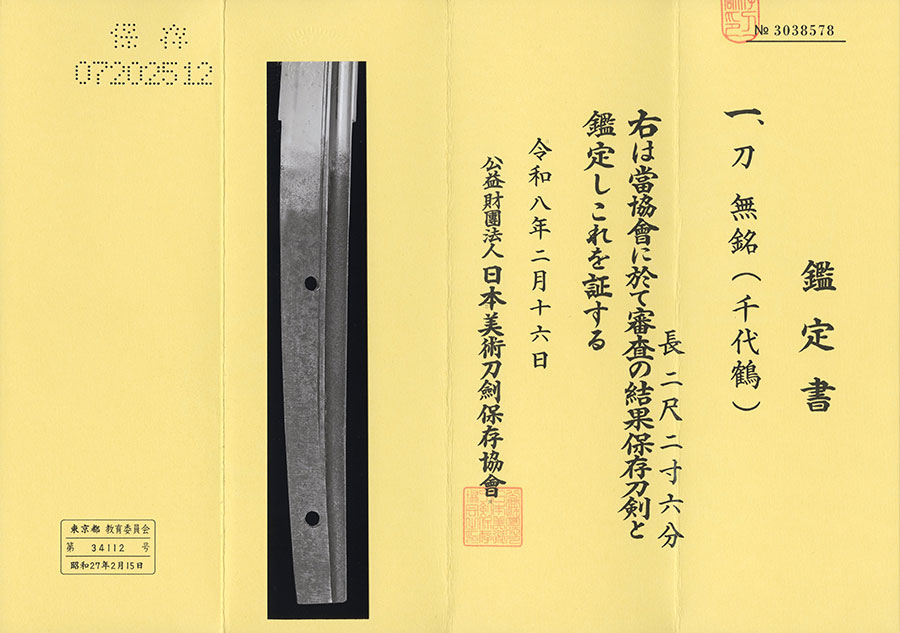 № 3038578
鑑定書
一、刀 無銘(千代鶴)
長二尺二寸六分
右は當協會に於て審査の結果保存刀剣と
鑑定しこれを証する
令和八年二月十六日
公益財團法人日本美術刀劍保存協會
保存
07202512
東京都 教育委員会
第 34112 号
昭和27年2月15日